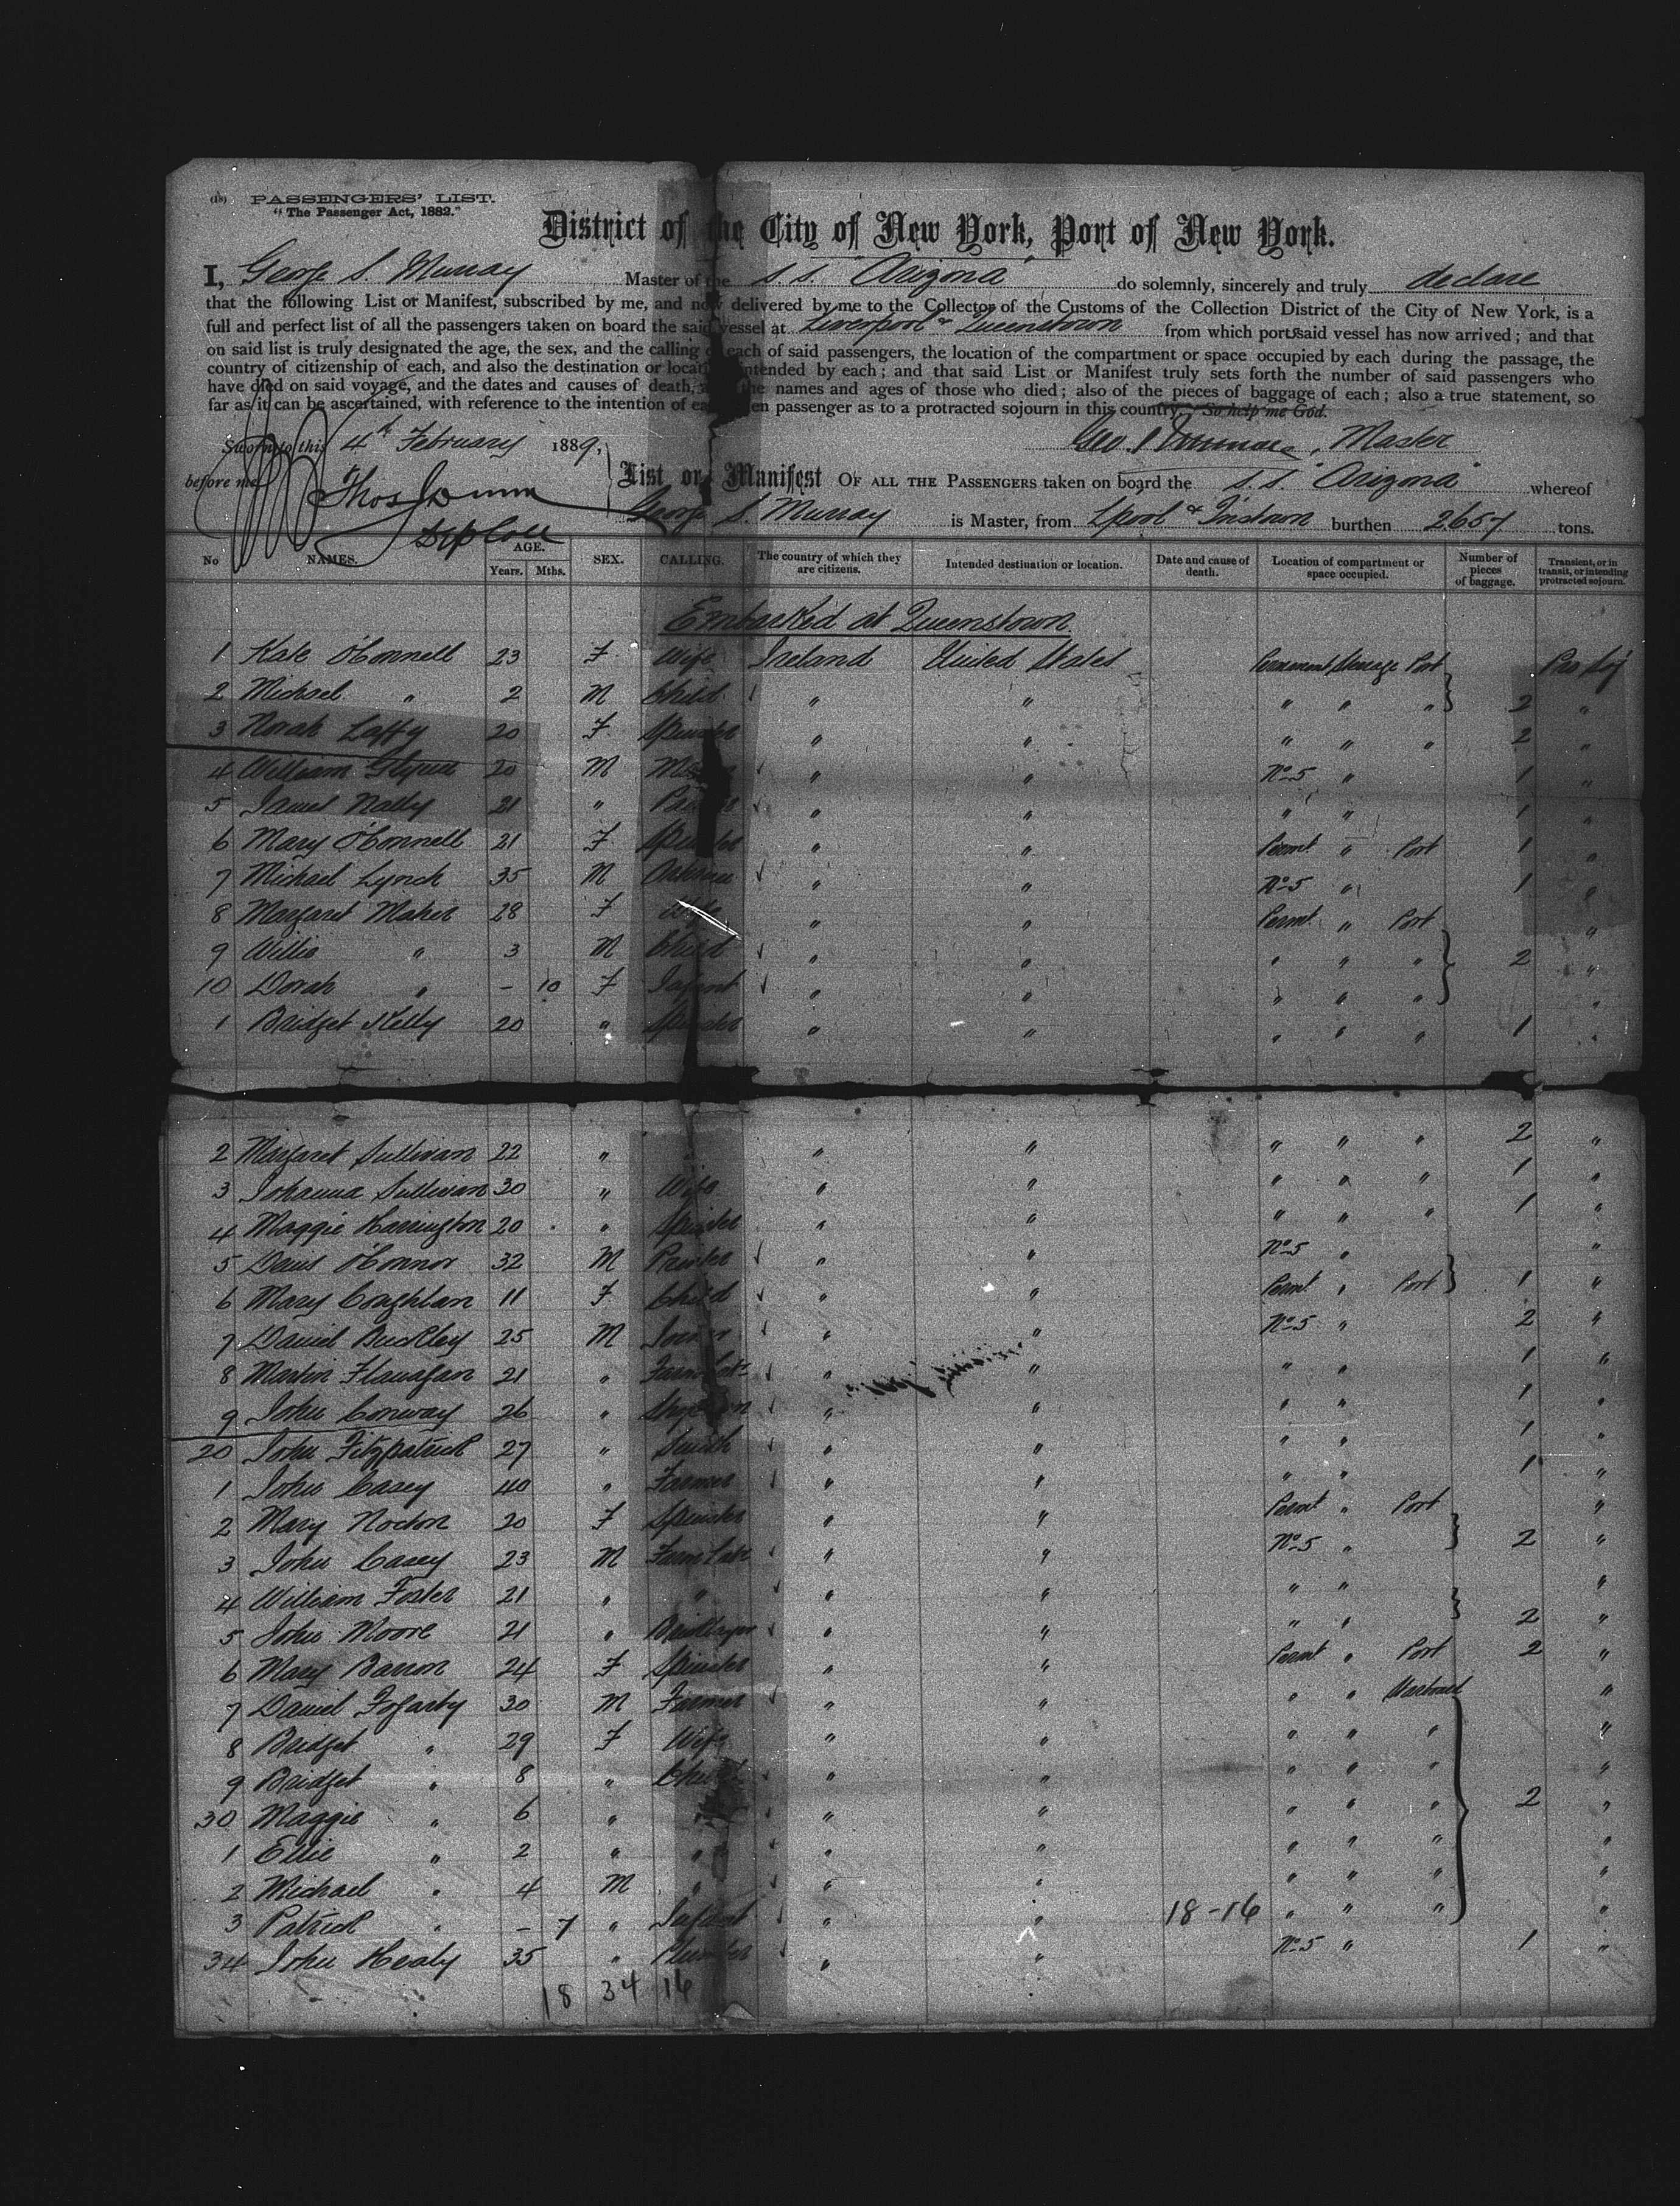 (18) PASSENGERS' LIST.
"The Passenger Act, 1882."
District of the City of New York, Port of New York.
I, George S. Murray Master of the S.S. "Arizona" do solemnly, sincerely and truly declare
that the following List or Manifest, subscribed by me, and now delivered by me to the Collector of the Customs of the Collection District of the City of New York, is a
full and perfect list of all the passengers taken on board the said vessel at Liverpool & Queenstown from which ports said vessel has now arrived; and that
on said list is truly designated the age, the sex, and the calling of each of said passengers, the location of the compartment or space occupied by each during the passage, the
country of citizenship of each, and also the destination or location intended by each; and that said List or Manifest truly sets forth the number of said passengers who
have died on said voyage, and the dates and causes of death, the names and ages of those who died; also of the pieces of baggage of each; also a true statement, so
far as it can be ascertained, with reference to the intention of each passenger as to a protracted sojourn in this country. So help me God.
Sworn to this 4th February 1889,
Geo. S. Murray, Master
before me
List or Manifest OF ALL THE PASSENGERS taken on board the S.S. "Arizona" whereof
George S. Murray is Master, from Lpool & Qnstown burthen 2657 tons.
No NAMES. AGE. Years. Mths. SEX. CALLING. The country of which they are citizens. Intended destination or location. Date and cause of death. Location of compartment or space occupied. Number of pieces of baggage. Transient, or in transit, or intending protracted sojourn.
Embarked at Queenstown
1 Kate O'Connell 23 F Wife Ireland United States Permanent Steerage Port Pro Soj
2 Michael " 2 M Child " " " " " 2 "
3 Norah Laffy 20 F Spinster " " " " " 2 "
4 William Glynn 20 M " " No 5 " 1 "
5 Daniel Nally 21 " " " " " 1 "
6 Mary O'Connell 21 F Spinster " " Permt " Port 1 "
7 Michael Lynch 35 M " " No 5 " 1 "
8 Margaret Maher 28 F Wife " " Permt " Port "
9 Willie " 3 M Child " " " " " 2 "
10 Dorah " - 10 F Infant " " " " " "
1 Bridget Kelly 20 " Spinster " " " " " 1 "
2 Margaret Sullivan 22 " " " " " " 2 "
3 Johanna Sullivan 30 " Wife " " " " " 1 "
4 Maggie Harrington 20 " Spinster " " " " " 1 "
5 Denis O'Connor 32 M " " No 5 " "
6 Mary Coughlan 11 F Child " " Permt " Port 1 "
7 Daniel Buckley 25 M " " No 5 " 2 "
8 Martin Flanagan 21 " Farm Labr " " " " 1 "
9 John Conway 26 " " " " " 1 "
20 John Fitzpatrick 27 " Smith " " " " 1 "
1 John Casey 40 " Farmer " " " " 1 "
2 Mary Nocton 20 F Spinster " " Permt " Port "
3 John Casey 23 M Farm Labr " " No 5 " 2 "
4 William Foster 21 " " " " " " "
5 John Moore 21 " " " " " 2 "
6 Mary Barron 24 F Spinster " " Permt " Port 2 "
7 Daniel Fogarty 30 M Farmer " " " " "
8 Bridget " 29 F Wife " " " " " "
9 Bridget " 8 " Child " " " " " "
30 Maggie " 6 " " " " " " 2 "
1 Ellie " 2 " " " " " " " "
2 Michael " 4 M " " " " " " "
3 Patrick " - 7 " Infant " " 18-16 " " " "
34 John Healy 35 " Plumber " " No 5 " 1 "
18 34 16